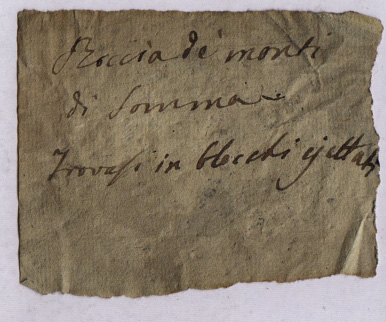 Roccia de' monti
di Somma
Trovasi in blocchi ejettati